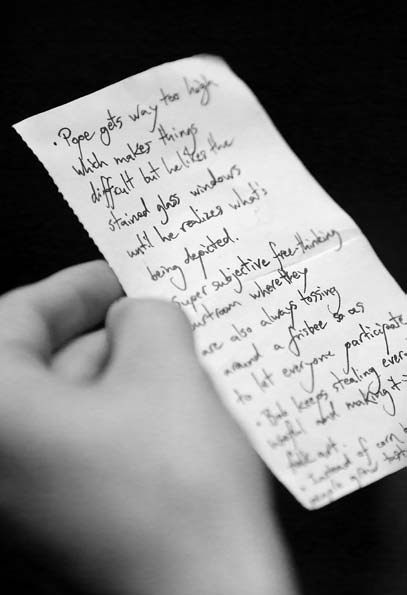 · Pope gets way too high
which makes things
difficult but he likes the
stained glass windows
until he realizes what's
being depicted.
super subjective free-thinking
where they
are also always tossing
around a frisbee so as
to let everyone participate
· Bob keeps stealing
and making it
folk art.
· Instead of corn
people after